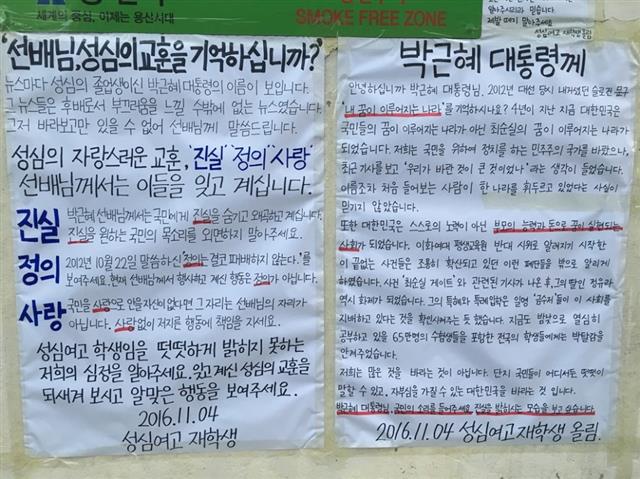 세계의 중심, 이제는 용산시대
SMOKE FREE ZONE
성심여고 재학생 올림
'선배님, 성심의 교훈을 기억하십니까?'
뉴스마다 성심의 졸업생이신 박근혜 대통령의 이름이 보입니다.
그 뉴스들은 후배로서 부끄러움을 느낄 수밖에 없는 뉴스였습니다.
그저 바라보고만 있을 수 없어 선배님께 말씀드립니다.
성심의 자랑스러운 교훈, '진실' '정의' '사랑'
선배님께서는 이들을 잊고 계십니다.
진실 박근혜 선배님께서는 국민에게 진실을 숨기고 왜곡하고 계십니다.
진실을 원하는 국민의 목소리를 외면하지 말아주세요.
정의 2012년 10월 22일 말씀하신 '정의는 결코 패배하지 않는다.'를
보여주세요. 현재 선배님께서 행사하고 계신 행동은 정의가 아닙니다.
사랑 국민을 사랑으로 안을 자신이 없다면 그 자리는 선배님의 자리가
아닙니다. 사랑 없이 저지른 행동에 책임을 지세요.
성심여고 학생임을 떳떳하게 밝히지 못하는
저희의 심정을 알아주세요. 잊고 계신 성심의 교훈을
되새겨 보시고 알맞은 행동을 보여주세요.
2016.11.04
성심여고 재학생
박근혜 대통령께
안녕하십니까 박근혜 대통령님. 2012년 대선 당시 내거셨던 슬로건 문구
'내 꿈이 이루어지는 나라'를 기억하시나요? 4년이 지난 지금 대한민국은
국민들의 꿈이 이루어지는 나라가 아닌 최순실의 꿈이 이루어지는 나라가
되었습니다. 저희는 국민을 위하여 정치를 하는 민주주의 국가를 바랐으나,
최근 기사를 보고 '우리가 바란 것이 큰 것이었나'라는 생각이 들었습니다.
이름조차 처음 들어보는 사람이 한 나라를 휘두르고 있었다는 사실이
믿기지 않았습니다.
또한 대한민국은 스스로의 노력이 아닌 부모의 능력과 돈으로 꿈이 실현되는
사회가 되었습니다. 이화여대 평생교육원 반대 시위로 알려지기 시작한
이 끝없는 사건들은 조용히 확산되고 있던 이런 폐단들을 밖으로 알리게
하였습니다. 사건 '최순실 게이트'와 관련된 기사가 나온 후, 그의 딸인 정유라
역시 화제가 되었습니다. 그의 특혜와 특례입학은 일명 '금수저'들이 이 사회를
지배하고 있다는 것을 확신시켜주는 듯 했습니다. 지금도 밤낮으로 열심히
공부하고 있을 65만명의 수험생들을 포함한 전국의 학생들에게는 박탈감을
안겨주었습니다.
저희는 많은 것을 바라는 것이 아닙니다. 단지 국민들이 어디서든 떳떳이
말할 수 있고, 자부심을 가질 수 있는 대한민국을 바라는 것 입니다.
박근혜 대통령님, 국민의 소리를 들어주세요. 진실을 밝히시는 모습을 보고 싶습니다.
2016.11.04 성심여고 재학생 올림.